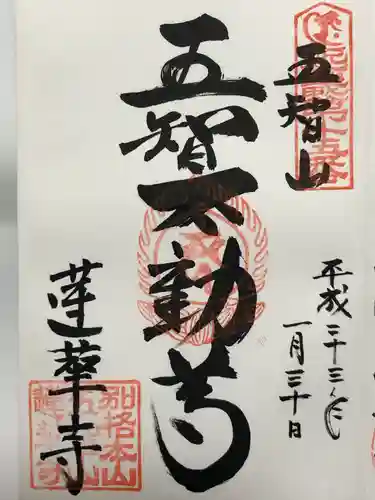 五智山
第十五番
五智不動尊
平成二十三年
一月三十日
蓮華寺
別格本山